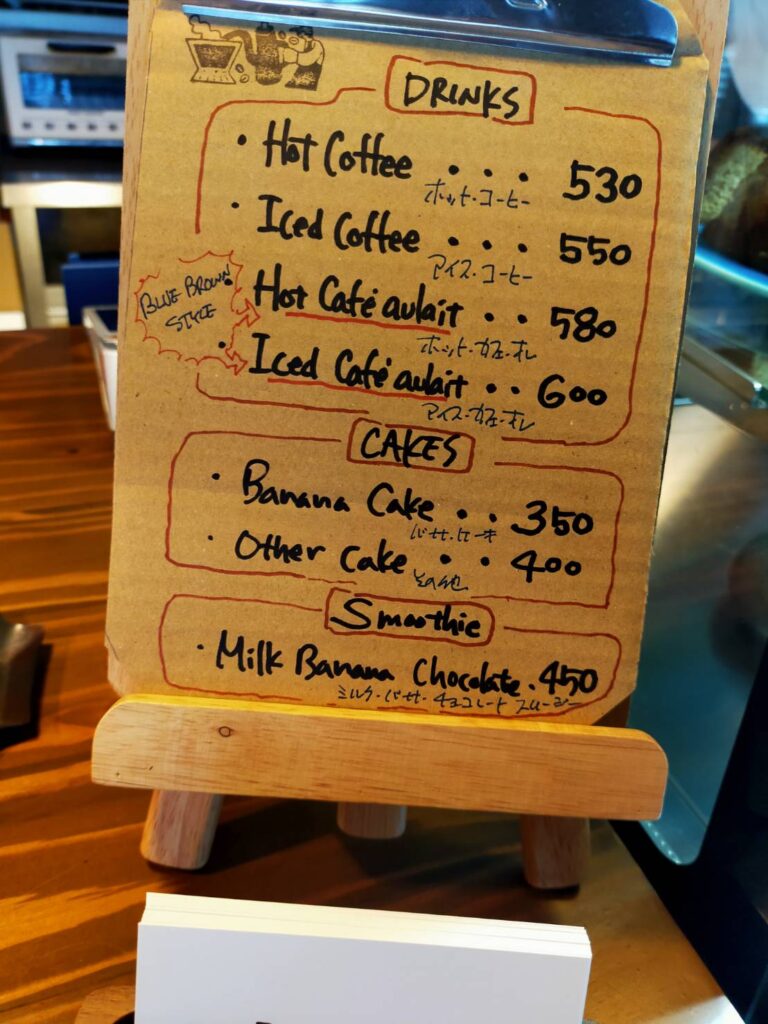 DRINKS
• Hot Coffee . . . 530
ホット・コーヒー
• Iced Coffee . . . 550
アイス・コーヒー
BLUE BROWN
STYLE
• Hot Café aulait . . 580
ホット・カフェ・オレ
• Iced Café aulait . . 600
アイス・カフェ・オレ
CAKES
• Banana Cake . . 350
バナナ・ケーキ
• Other Cake . . 400
その他
Smoothie
• Milk Banana Chocolate . 450
ミルク・バナナ・チョコレートスムージー